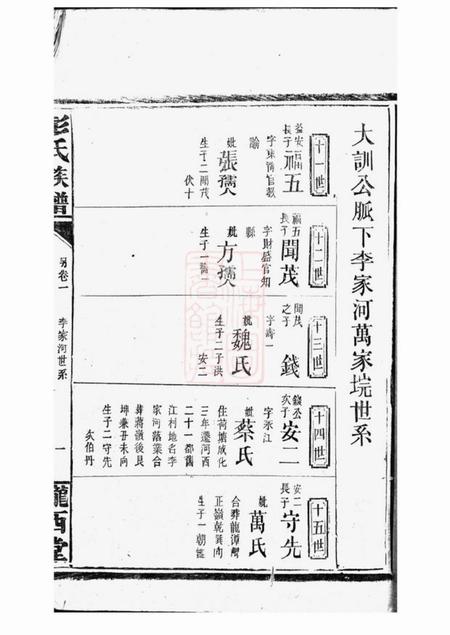 大訓公脈下李家河萬家垸世系
十一世
益安
長子
福五
字東
諭
妣張孺
生子二聞茂
伏十
十二世
福五
長子
聞茂
字財盛官知
縣
妣方孺
生子一
十三世
聞茂
之子
錢
字壽一
妣魏氏
生子二子洪
安二
十四世
錢公
次子
安二
字永江
妣蔡氏
住荷塘成化
三年遷河西
二十一都舊
江村地名李
家河落業合
葬蔣嶺後艮
坤兼丑未向
生子二守先
次伯丹
十五世
安二
長子
守先
妣萬氏
合葬龍潭灣
正嶺乾巽向
生子一朝
彭氏族譜
另卷一
李家河世系
一
隴西堂